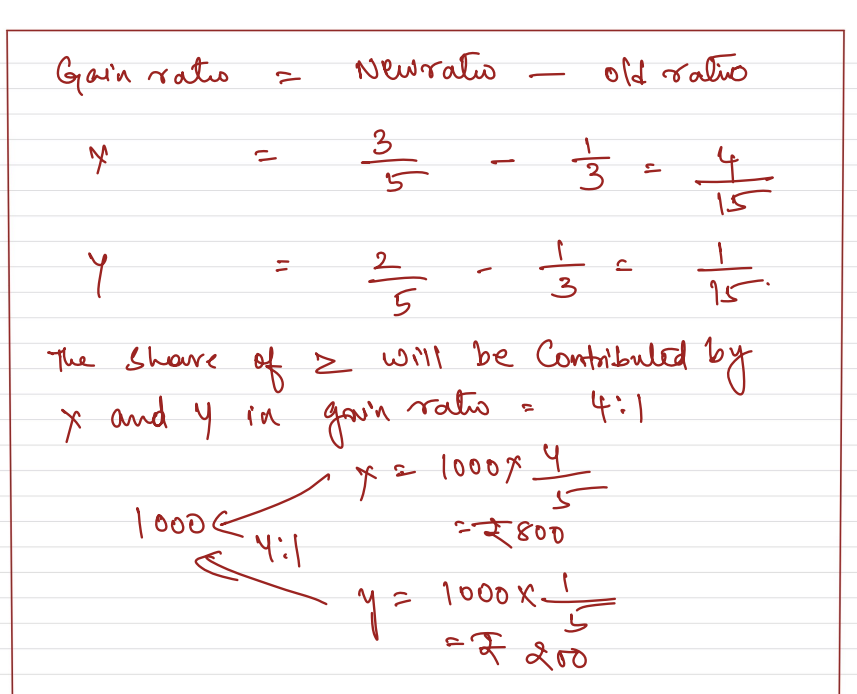 Gain ratio = New ratio — old ratio
X = 3/5 - 1/3 = 4/15
Y = 2/5 - 1/3 = 1/15.
The share of Z will be Contributed by
X and Y in gain ratio = 4:1
X = 1000 x 4/5
1000
4:1
= ₹ 800
Y = 1000 x 1/5
= ₹ 200